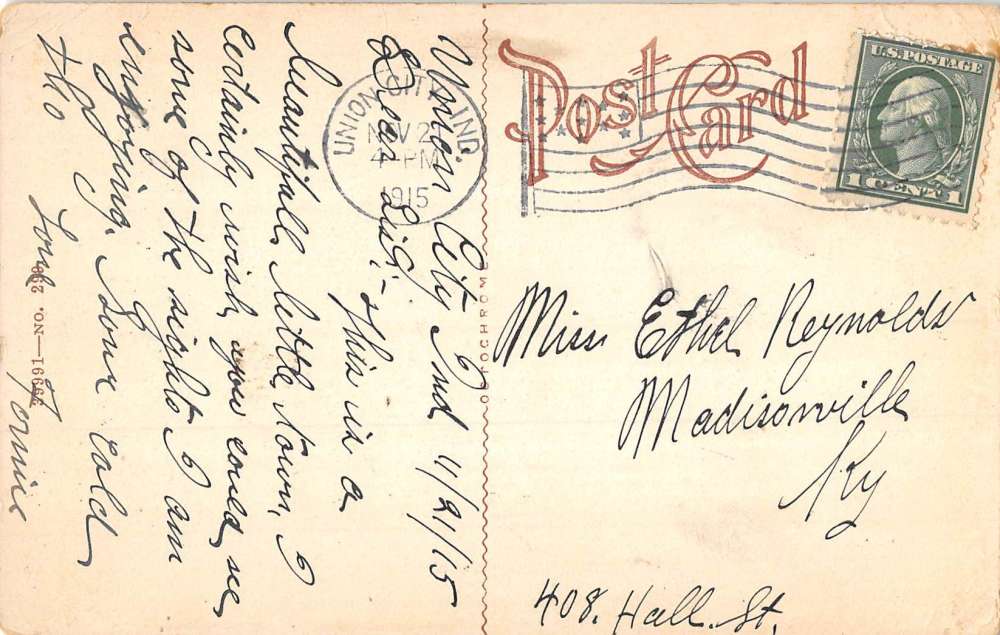 Post Card
U.S. POSTAGE
1 CENTS 1
UNION CITY, IND.
NOV 2
4-PM
1915
Union City Ind 11/21/15
Dear Sis:- This is a
beautifull little town, I
certainly wish you could see
some of the sights I am
enjoying. Some cold
tho
Love
Miss Ethel Reynolds
Madisonville
Ky
408. Hall. St.
OCTOCHROME